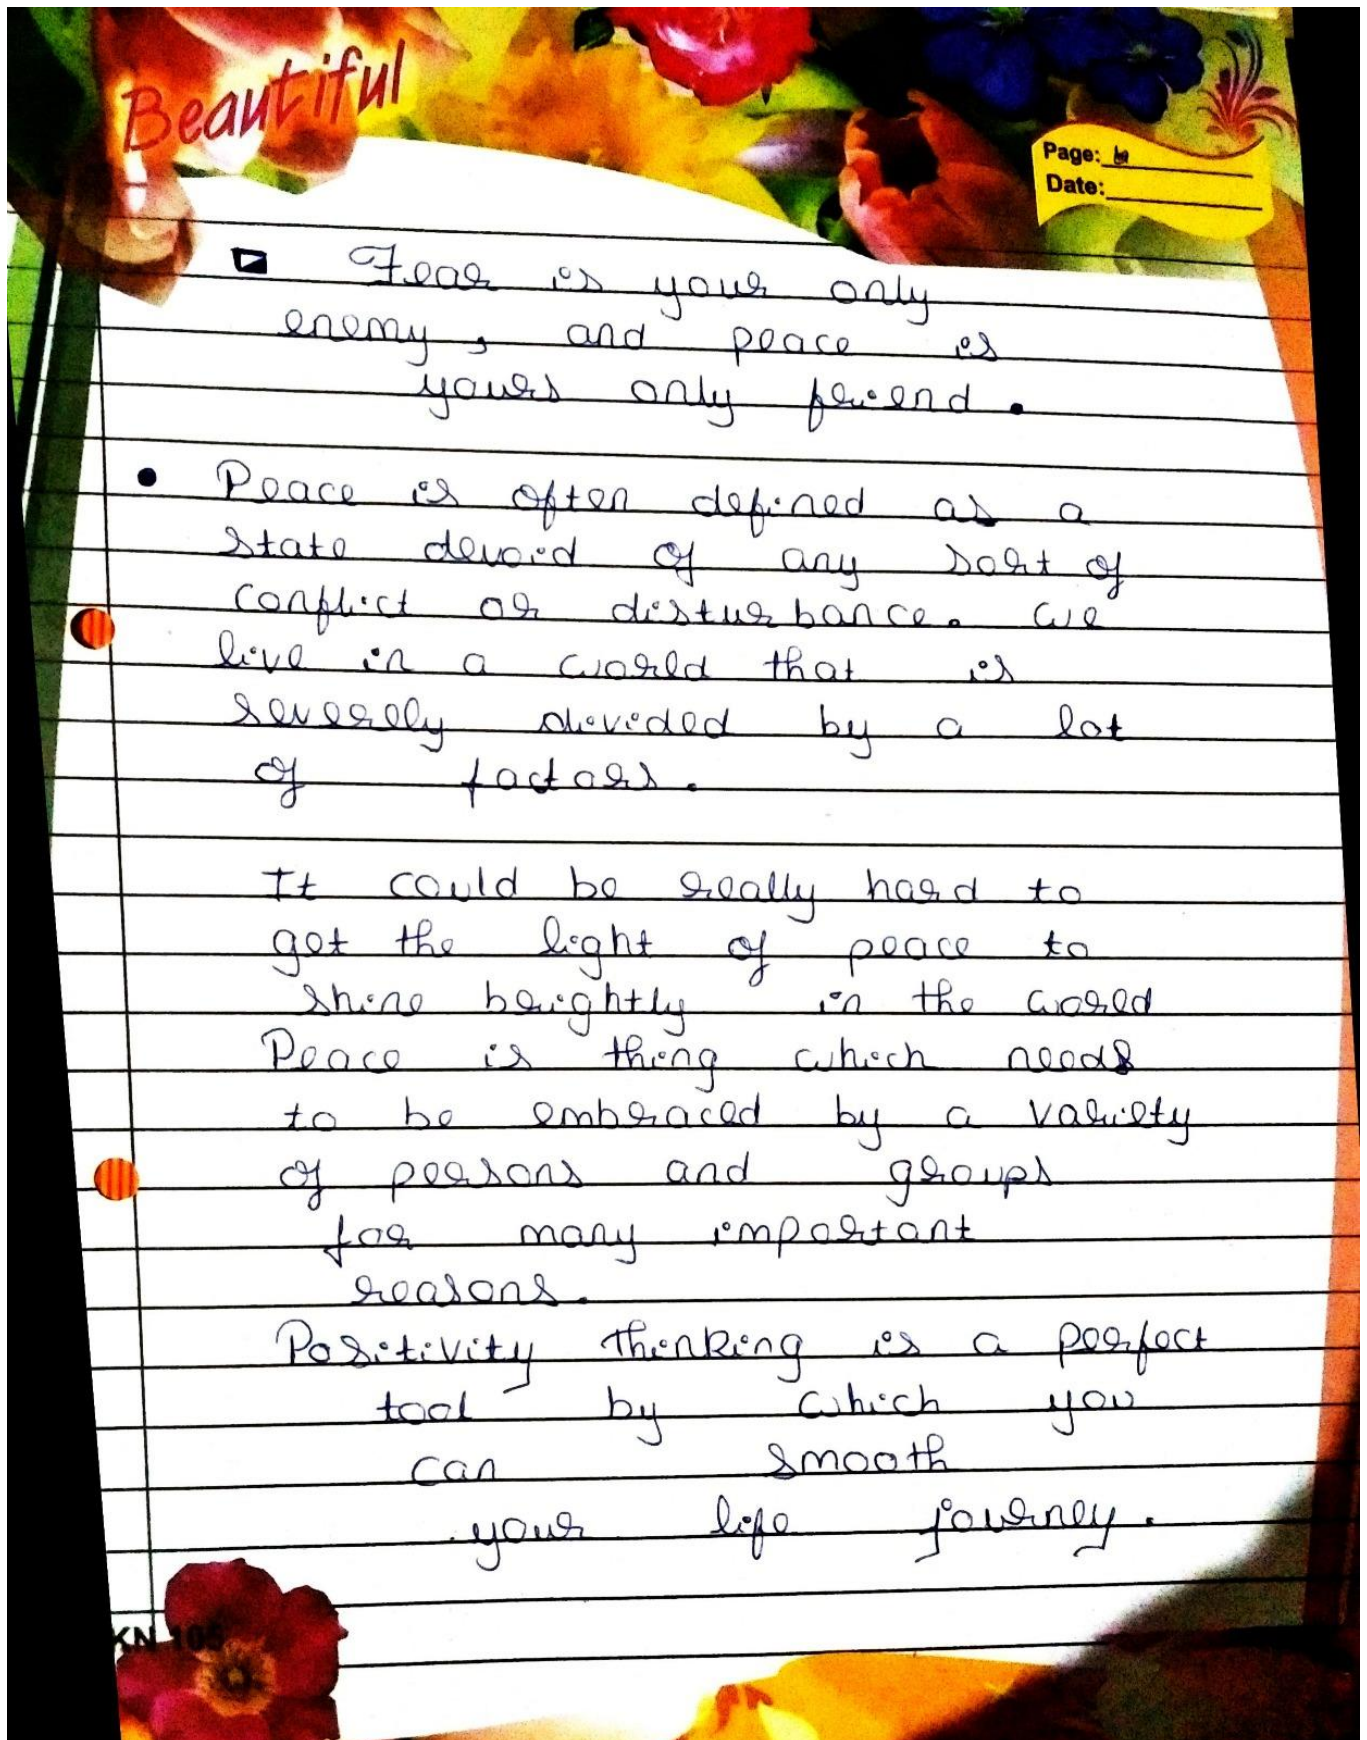 Beautiful
Page:
Date:
Fear is your only
enemy, and peace is
yours only friend.
• Peace is often defined as a
state devoid of any sort of
conflict or disturbance. we
live in a world that is
severely divided by a lot
of factors.
It could be really hard to
get the light of peace to
shine brightly in the world
Peace is thing which needs
to be embraced by a variety
of persons and groups
for many important
reasons.
Positivity thinking is a perfect
tool by which you
can smooth
your life journey.
KN 105